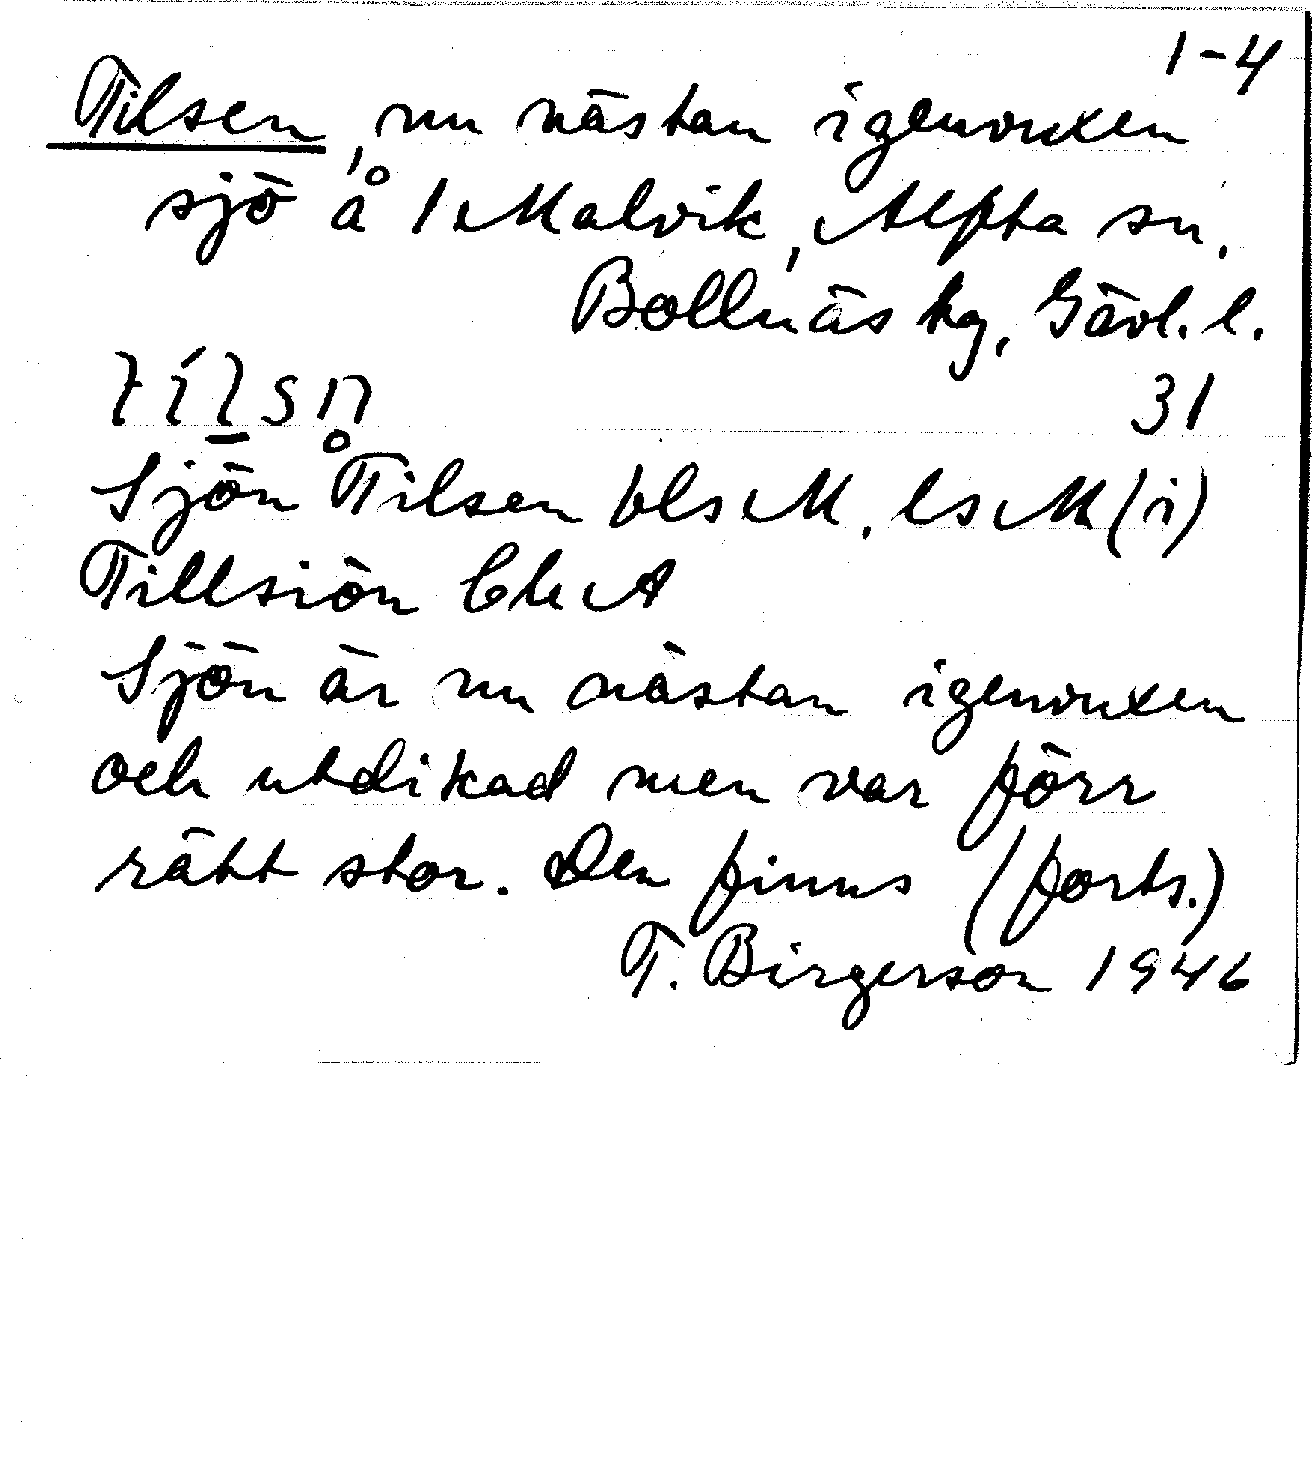 1-4
Tilsen, nu nästan igenvuxen
sjö å 1 Malvik, Alfta sn,
Bollnäs kg, Gävl. l.
31
Sjön Tilsen bls M, ls M (i)
Tillsiön Ch A
Sjön är nu nästan igenvuxen
och utdikad men var förr
rätt stor. Den finns (forts.)
T. Birgerson 1946